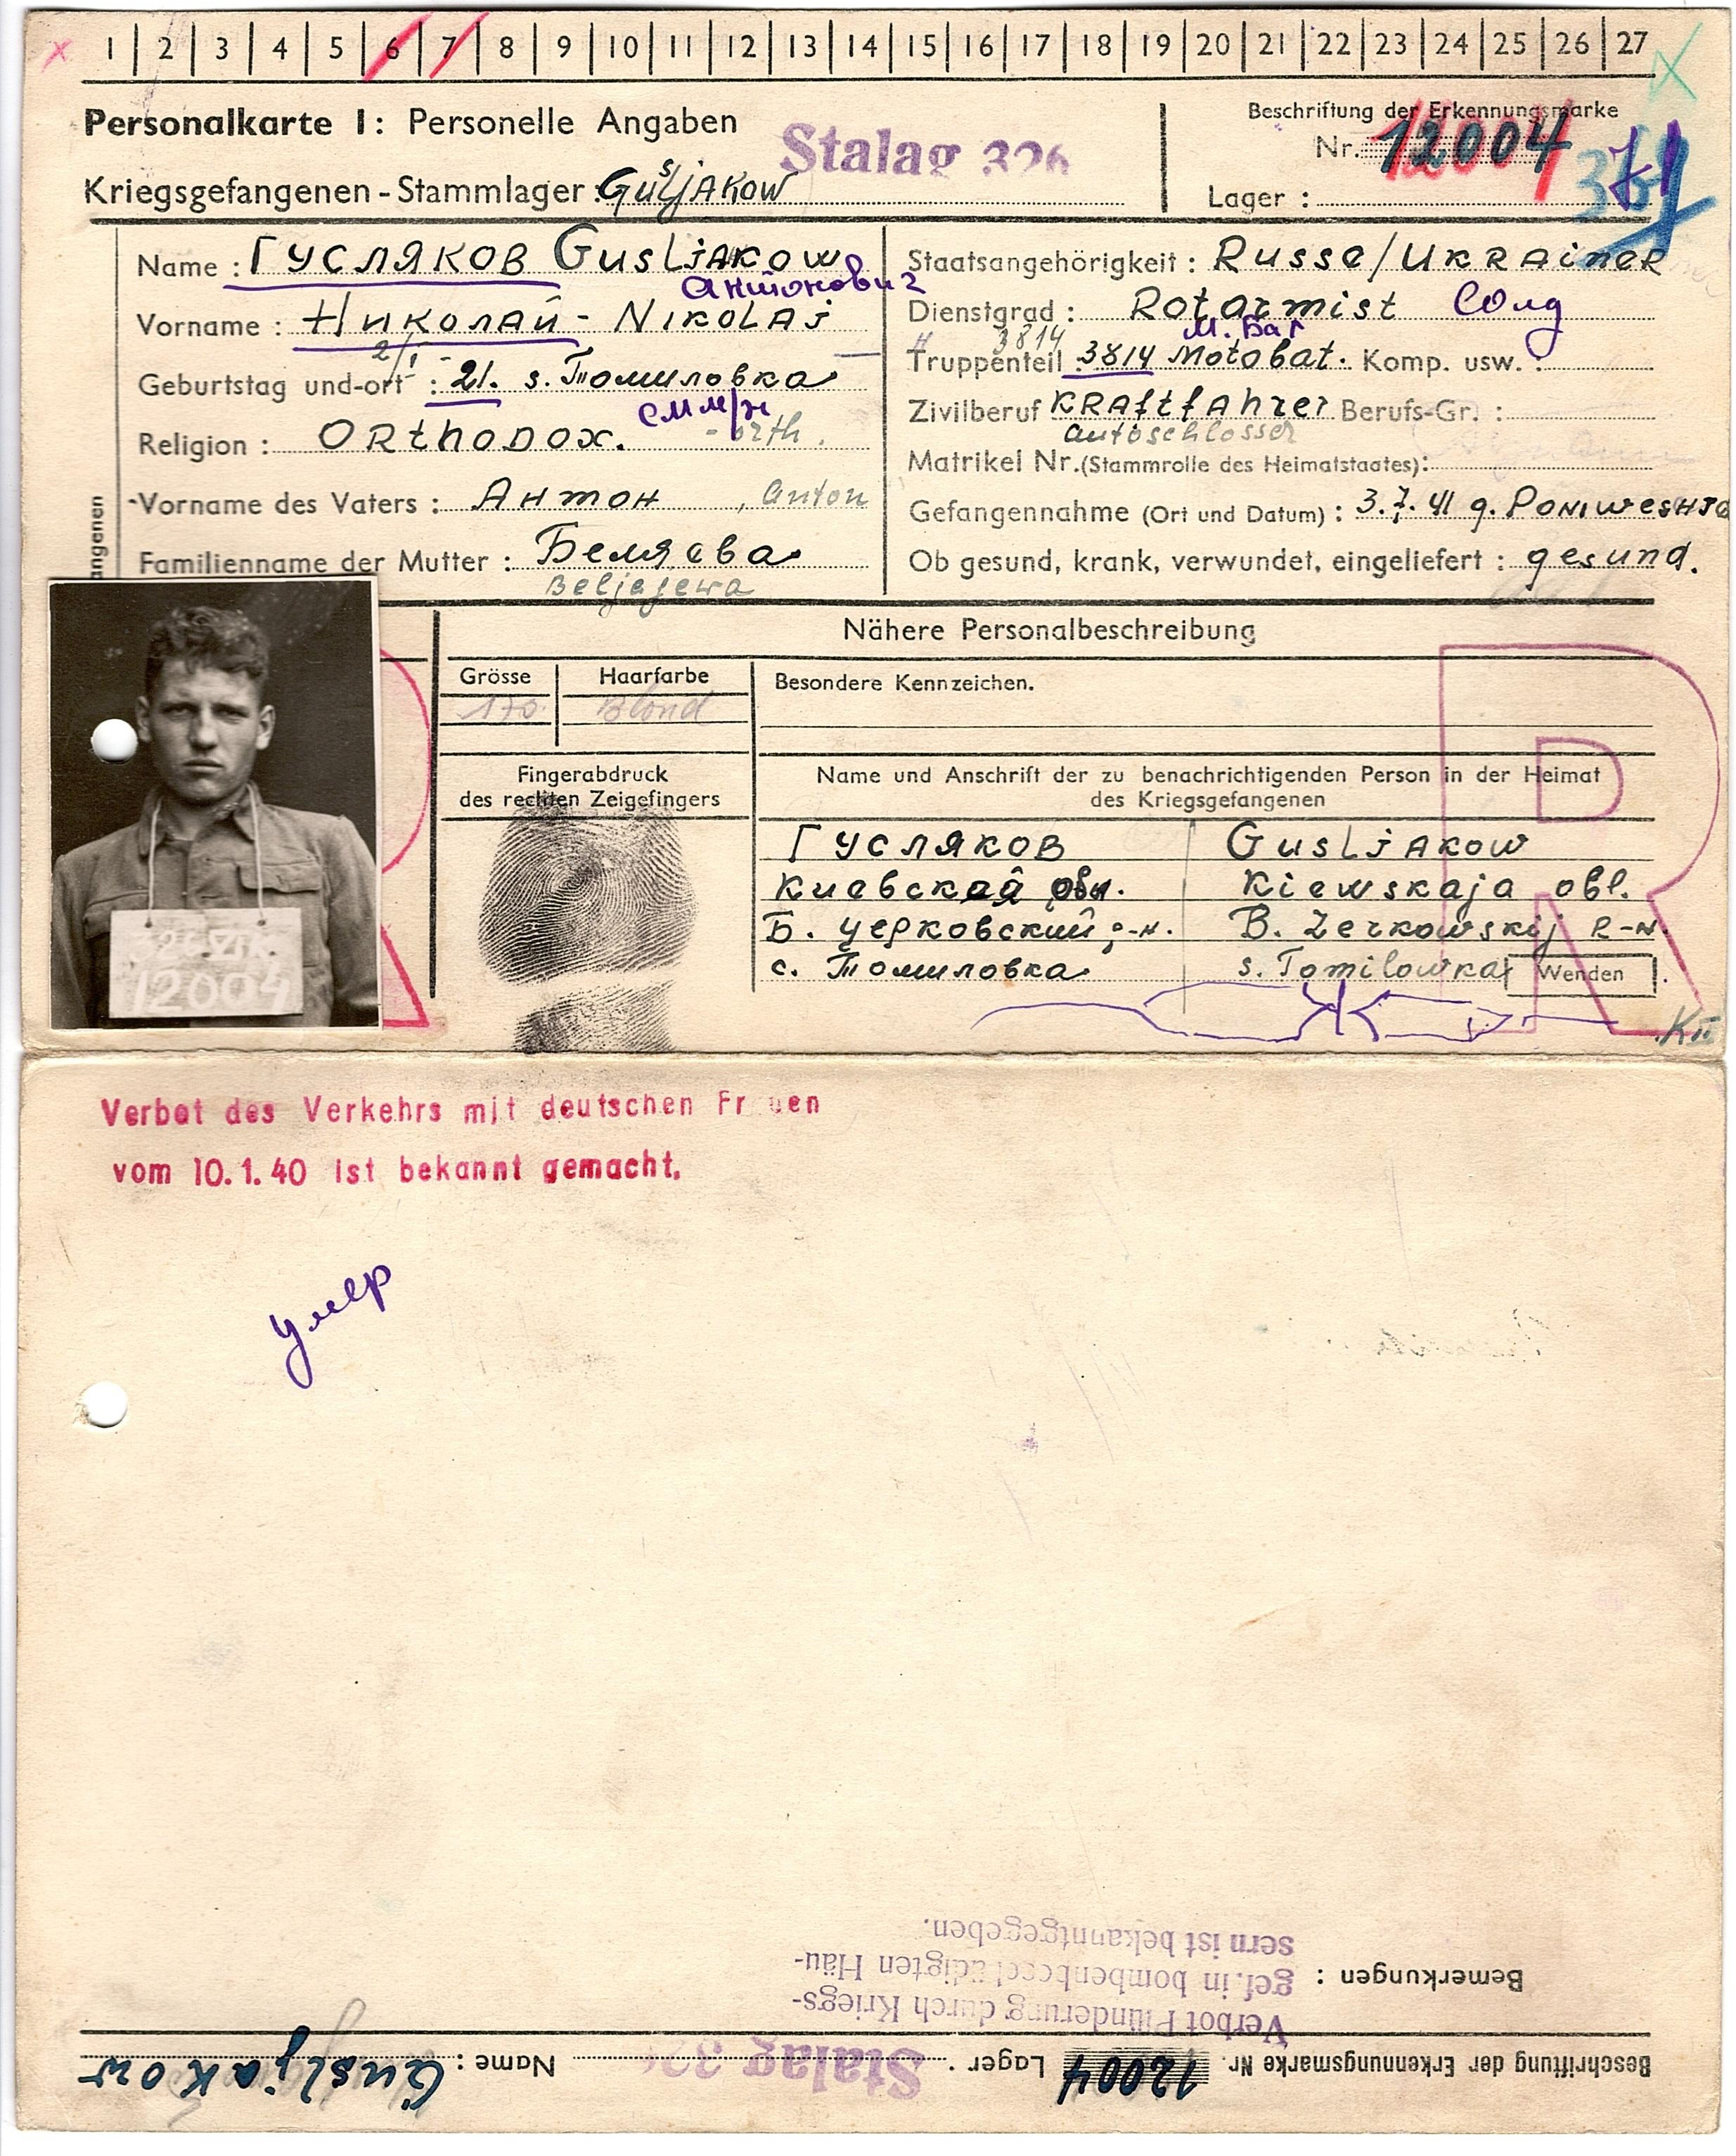 x 1 | 2 | 3 | 4 | 5 | 6 | 7 | 8 | 9 | 10 | 11 | 12 | 13 | 14 | 15 | 16 | 17 | 18 | 19 | 20 | 21 | 22 | 23 | 24 | 25 | 26 | 27 x
Personalkarte I: Personelle Angaben
Stalag 326
Kriegsgefangenen-Stammlager: Gusljakow
Beschriftung der Erkennungsmarke
Nr. 12004
Lager:
Name: Гусляков Gusljakow
Антонович
Vorname: Николай - Nikolaj
2/I
Geburtstag und-ort: 21. s. Томиловка
Religion: Orthodox. - orth.
Vorname des Vaters: Антон, Anton
Familienname der Mutter: Беляева
Beljajewa
angenen
Staatsangehörigkeit: Russe/Ukrainer
Dienstgrad: Rotarmist Солд
3814 М. Бат
Truppenteil 3814 Motobat. Komp. usw.:
Zivilberuf Kraftfahrer Berufs-Gr.:
Autoschlosser
Matrikel Nr. (Stammrolle des Heimatstaates):
Gefangennahme (Ort und Datum): 3.7.41 g. Poniweshja
Ob gesund, krank, verwundet, eingeliefert: gesund.
Nähere Personalbeschreibung
Grösse
170
Haarfarbe
Blond
Besondere Kennzeichen.
Fingerabdruck
des rechten Zeigefingers
12004
Name und Anschrift der zu benachrichtigenden Person in der Heimat
des Kriegsgefangenen
Гусляков Gusljakow
Киевская обл. Kiewskaja obl.
Б. Церковский р-н. B. Zerkowskij R-N.
с. Томиловка s. Tomilowka
Wenden
R
Verbot des Verkehrs mit deutschen Fr uen
vom 10.1.40 ist bekannt gemacht.
умер
Beschriftung der Erkennungsmarke Nr. 12004 Lager: Stalag 32 Name: Gusljakow
Bemerkungen:
Verbot Plünderung durch Kriegs-
gef. in bombenbeschädigten Häu-
sern ist bekanntgegeben.